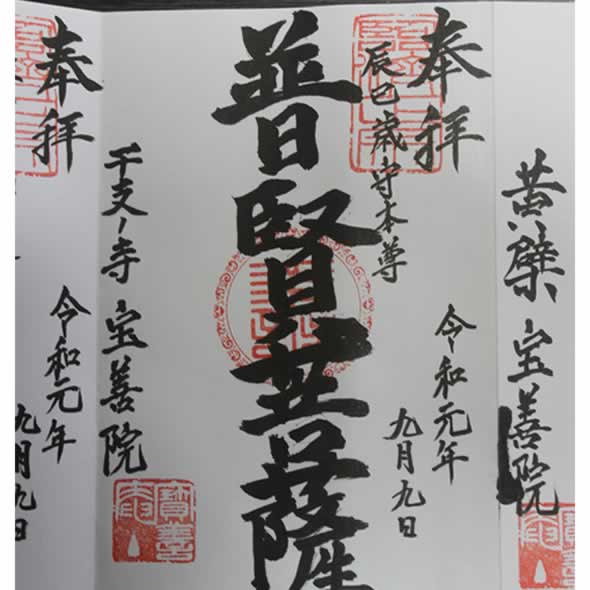 黄檗 宝善院
奉拝
辰巳歳守本尊
令和元年
九月九日
普賢菩薩
干支ノ寺 宝善院
奉拝
令和元年
九月九日